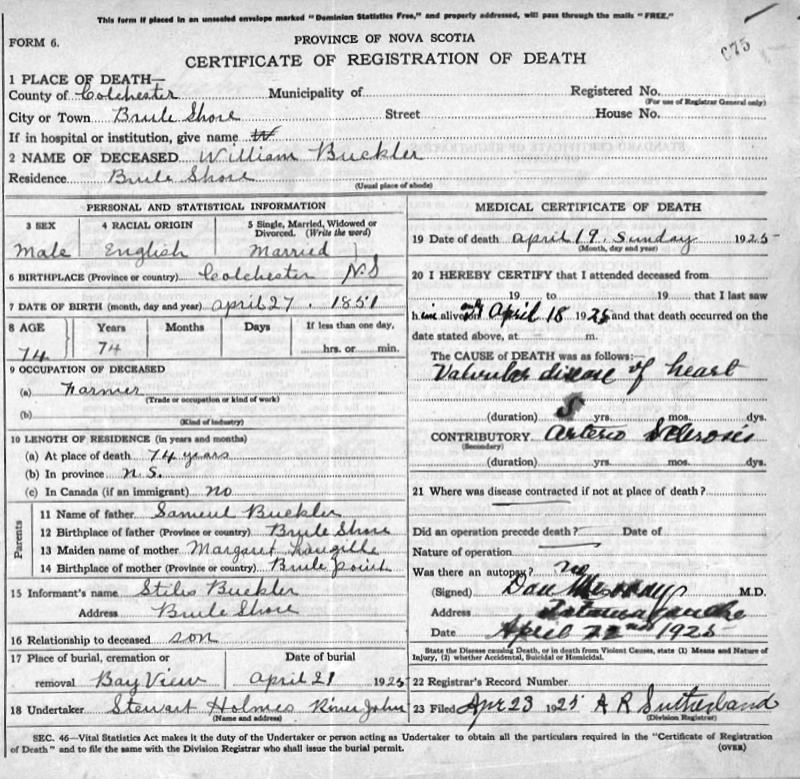 This form if placed in an unsealed envelope marked "Dominion Statistics Free," and property addressed, will pass through the mails "FREE."
FORM 6.
PROVINCE OF NOVA SCOTIA
675
CERTIFICATE OF REGISTRATION OF DEATH
1 PLACE OF DEATH—
County of Colchester Municipality of Registered No.
(For use of Registrar General only)
City or Town Brule Shore Street House No.
If in hospital or institution, give name
2 NAME OF DECEASED William Buckler
Residence Brule Shore
(Usual place of abode)
PERSONAL AND STATISTICAL INFORMATION
3 SEX 4 RACIAL ORIGIN 5 Single, Married, Widowed or Divorced. (Write the word)
Male English Married
6 BIRTHPLACE (Province or country) Colchester N.S
7 DATE OF BIRTH (month, day and year) april 27, 1851
8 AGE Years Months Days If less than one day,
74 74 hrs. or min.
9 OCCUPATION OF DECEASED
(a) Farmer
(Trade or occupation or kind of work)
(b)
(Kind of industry)
10 LENGTH OF RESIDENCE (in years and months)
(a) At place of death 74 years
(b) In province N.S.
(c) In Canada (if an immigrant) no
Parents
11 Name of father Sameul Buckler
12 Birthplace of father (Province or country) Brule Shore
13 Maiden name of mother Margaret Langille
14 Birthplace of mother (Province or country) Brule point
15 Informant's name Stiles Buckler
Address Brule Shore
16 Relationship to deceased son
17 Place of burial, cremation or Date of burial
removal Bay View april 21 1925
18 Undertaker Stewart Holmes River John
(Name and address)
MEDICAL CERTIFICATE OF DEATH
19 Date of death april 19. Sunday 1925
(Month, day and year)
20 I HEREBY CERTIFY that I attended deceased from
19 to 19 that I last saw
him alive on April 18 1925 and that death occurred on the
date stated above, at m.
The CAUSE of DEATH was as follows:—
Valvular disease of heart
(duration) 5 yrs. mos. dys.
CONTRIBUTORY. Arterio Sclerosis
(Secondary)
(duration) yrs. mos. dys.
21 Where was disease contracted if not at place of death?
Did an operation precede death? Date of
Nature of operation
Was there an autopsy? no
(Signed) Dan Murray M.D.
Address Tatamagouche
Date April 22nd 1925
State the Disease causing Death, or in death from Violent Causes, state (1) Means and Nature of
Injury, (2) whether Accidental, Suicidal or Homicidal.
22 Registrar's Record Number
23 Filed Apr 23 1925 A R Sutherland
(Division Registrar)
SEC. 46—Vital Statistics Act makes it the duty of the Undertaker or person acting as Undertaker to obtain all the particulars required in the "Certificate of Registration
of Death" and to file the same with the Division Registrar who shall issue the burial permit.
(OVER)